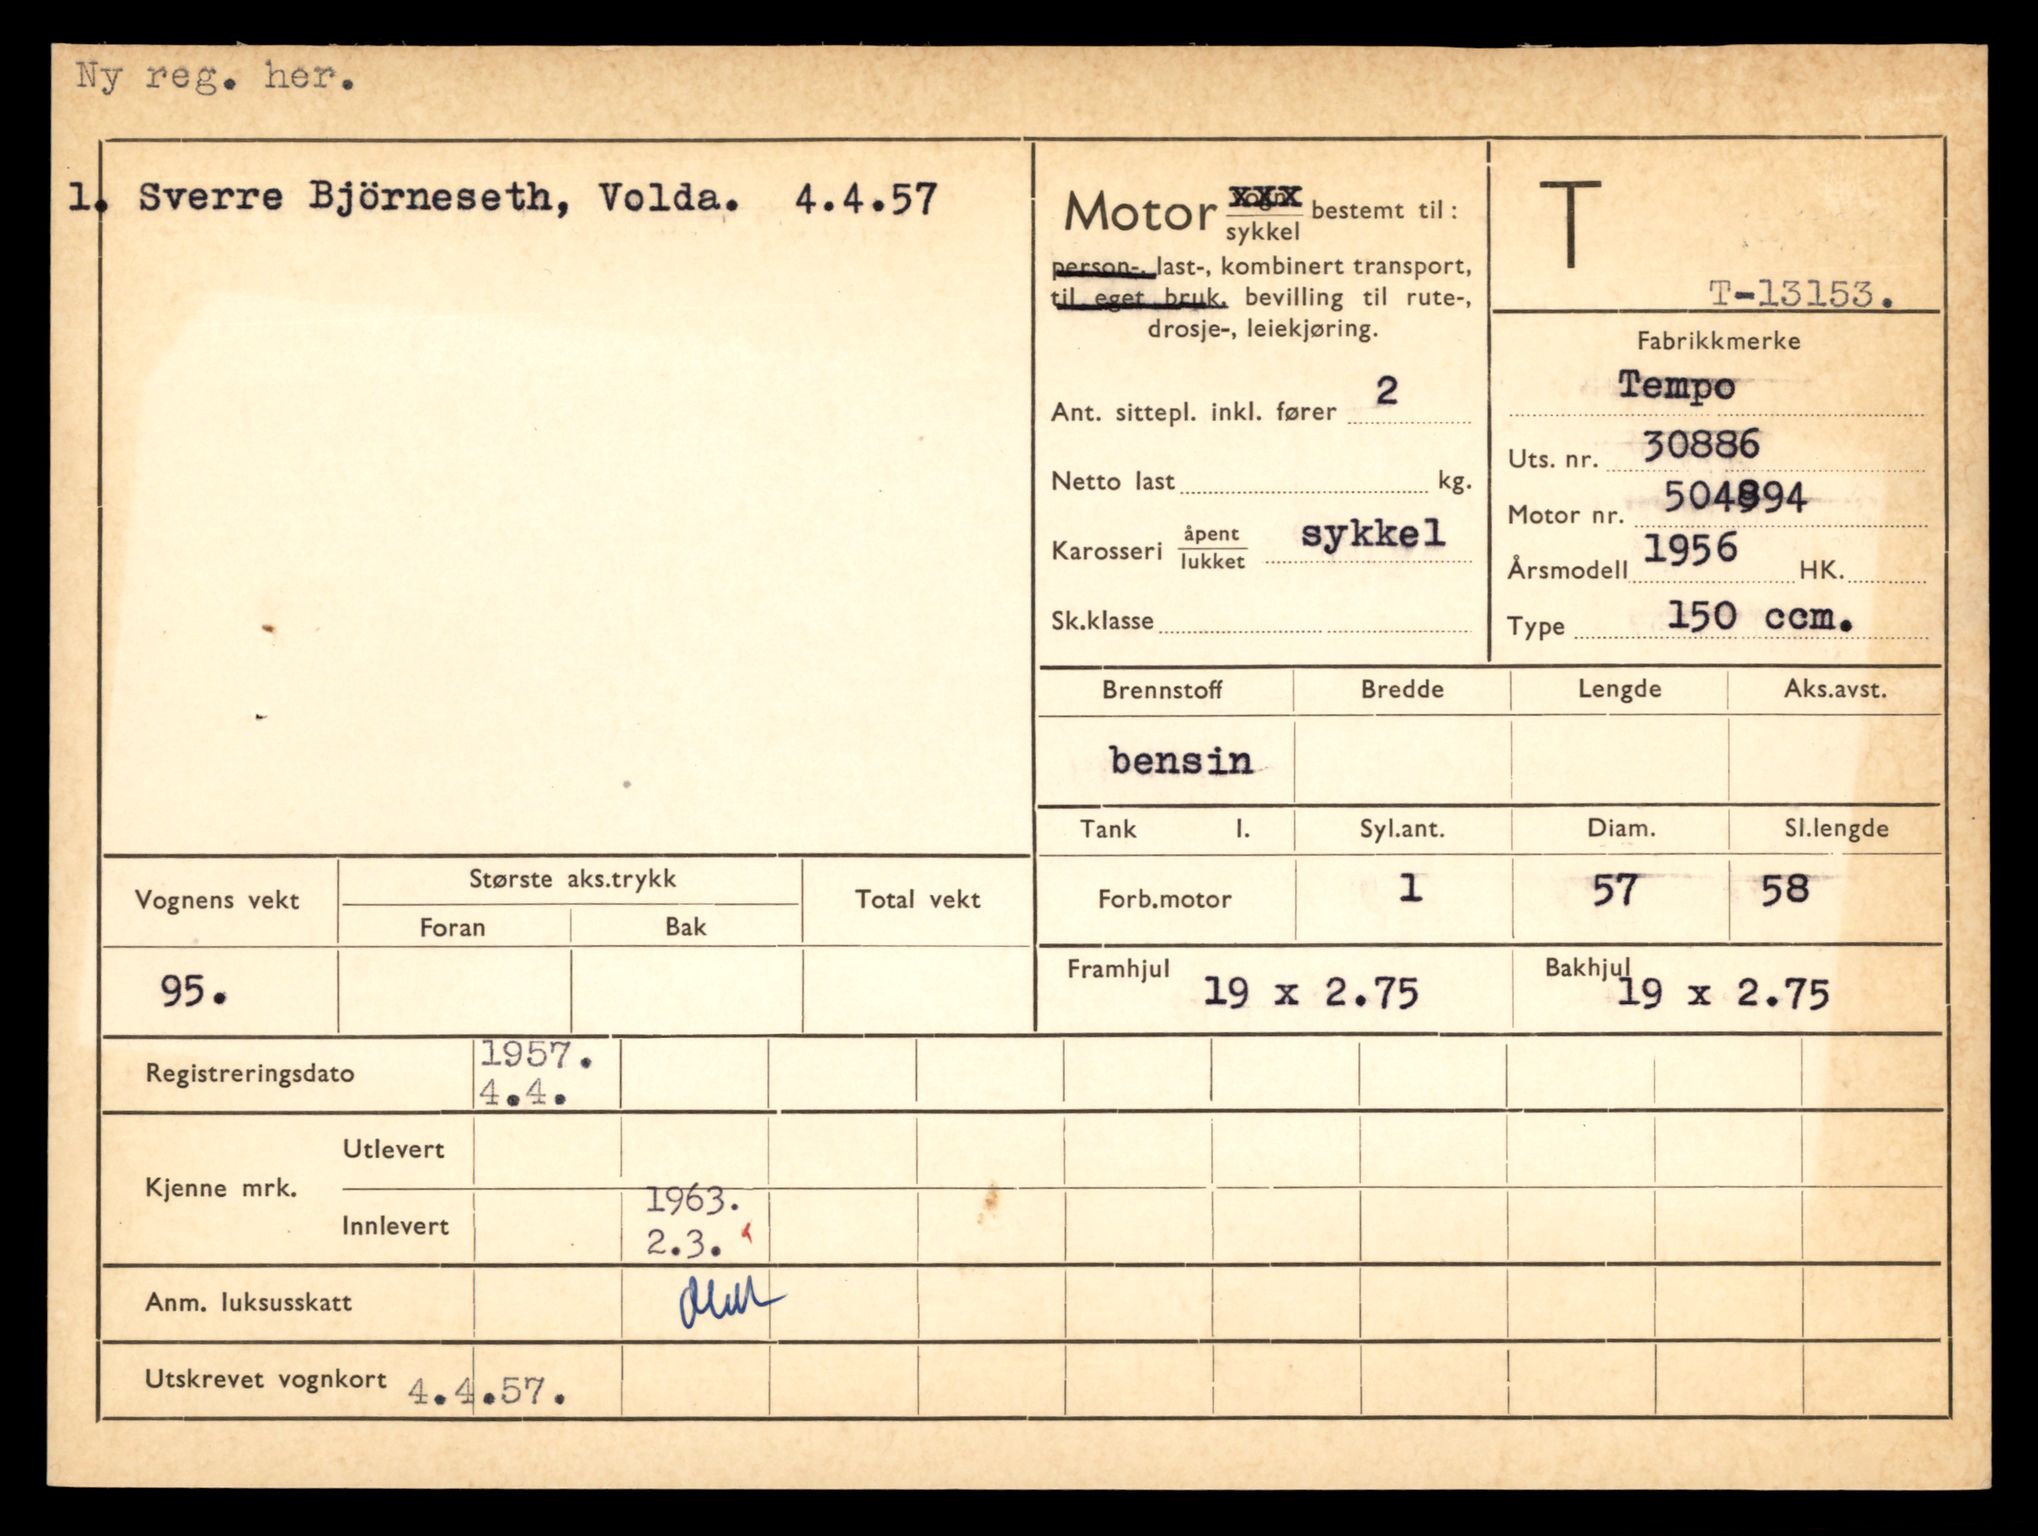 Ny reg. her.
1. Sverre Björneseth, Volda. 4.4.57
Motor sykkel bestemt til:
person-, last-, kombinert transport,
til eget bruk, bevilling til rute-,
drosje-, leiekjøring.
Ant. sittepl. inkl. fører 2
Netto last kg.
Karosseri åpent
lukket sykkel
Sk.klasse
T
T-13153.
Fabrikkmerke
Tempo
Uts. nr. 30886
Motor nr. 504894
Årsmodell 1956 HK.
Type 150 ccm.
Brennstoff Bredde Lengde Aks.avst.
bensin
Tank l. Syl.ant. Diam. Sl.lengde
Forb.motor 1 57 58
Framhjul 19 x 2.75 Bakhjul 19 x 2.75
Vognens vekt Største aks.trykk Total vekt
Foran Bak
95.
Registreringsdato 1957.
4.4.
Kjenne mrk. Utlevert
Innlevert 1963.
2.3.
Anm. luksusskatt
Utskrevet vognkort 4.4.57.